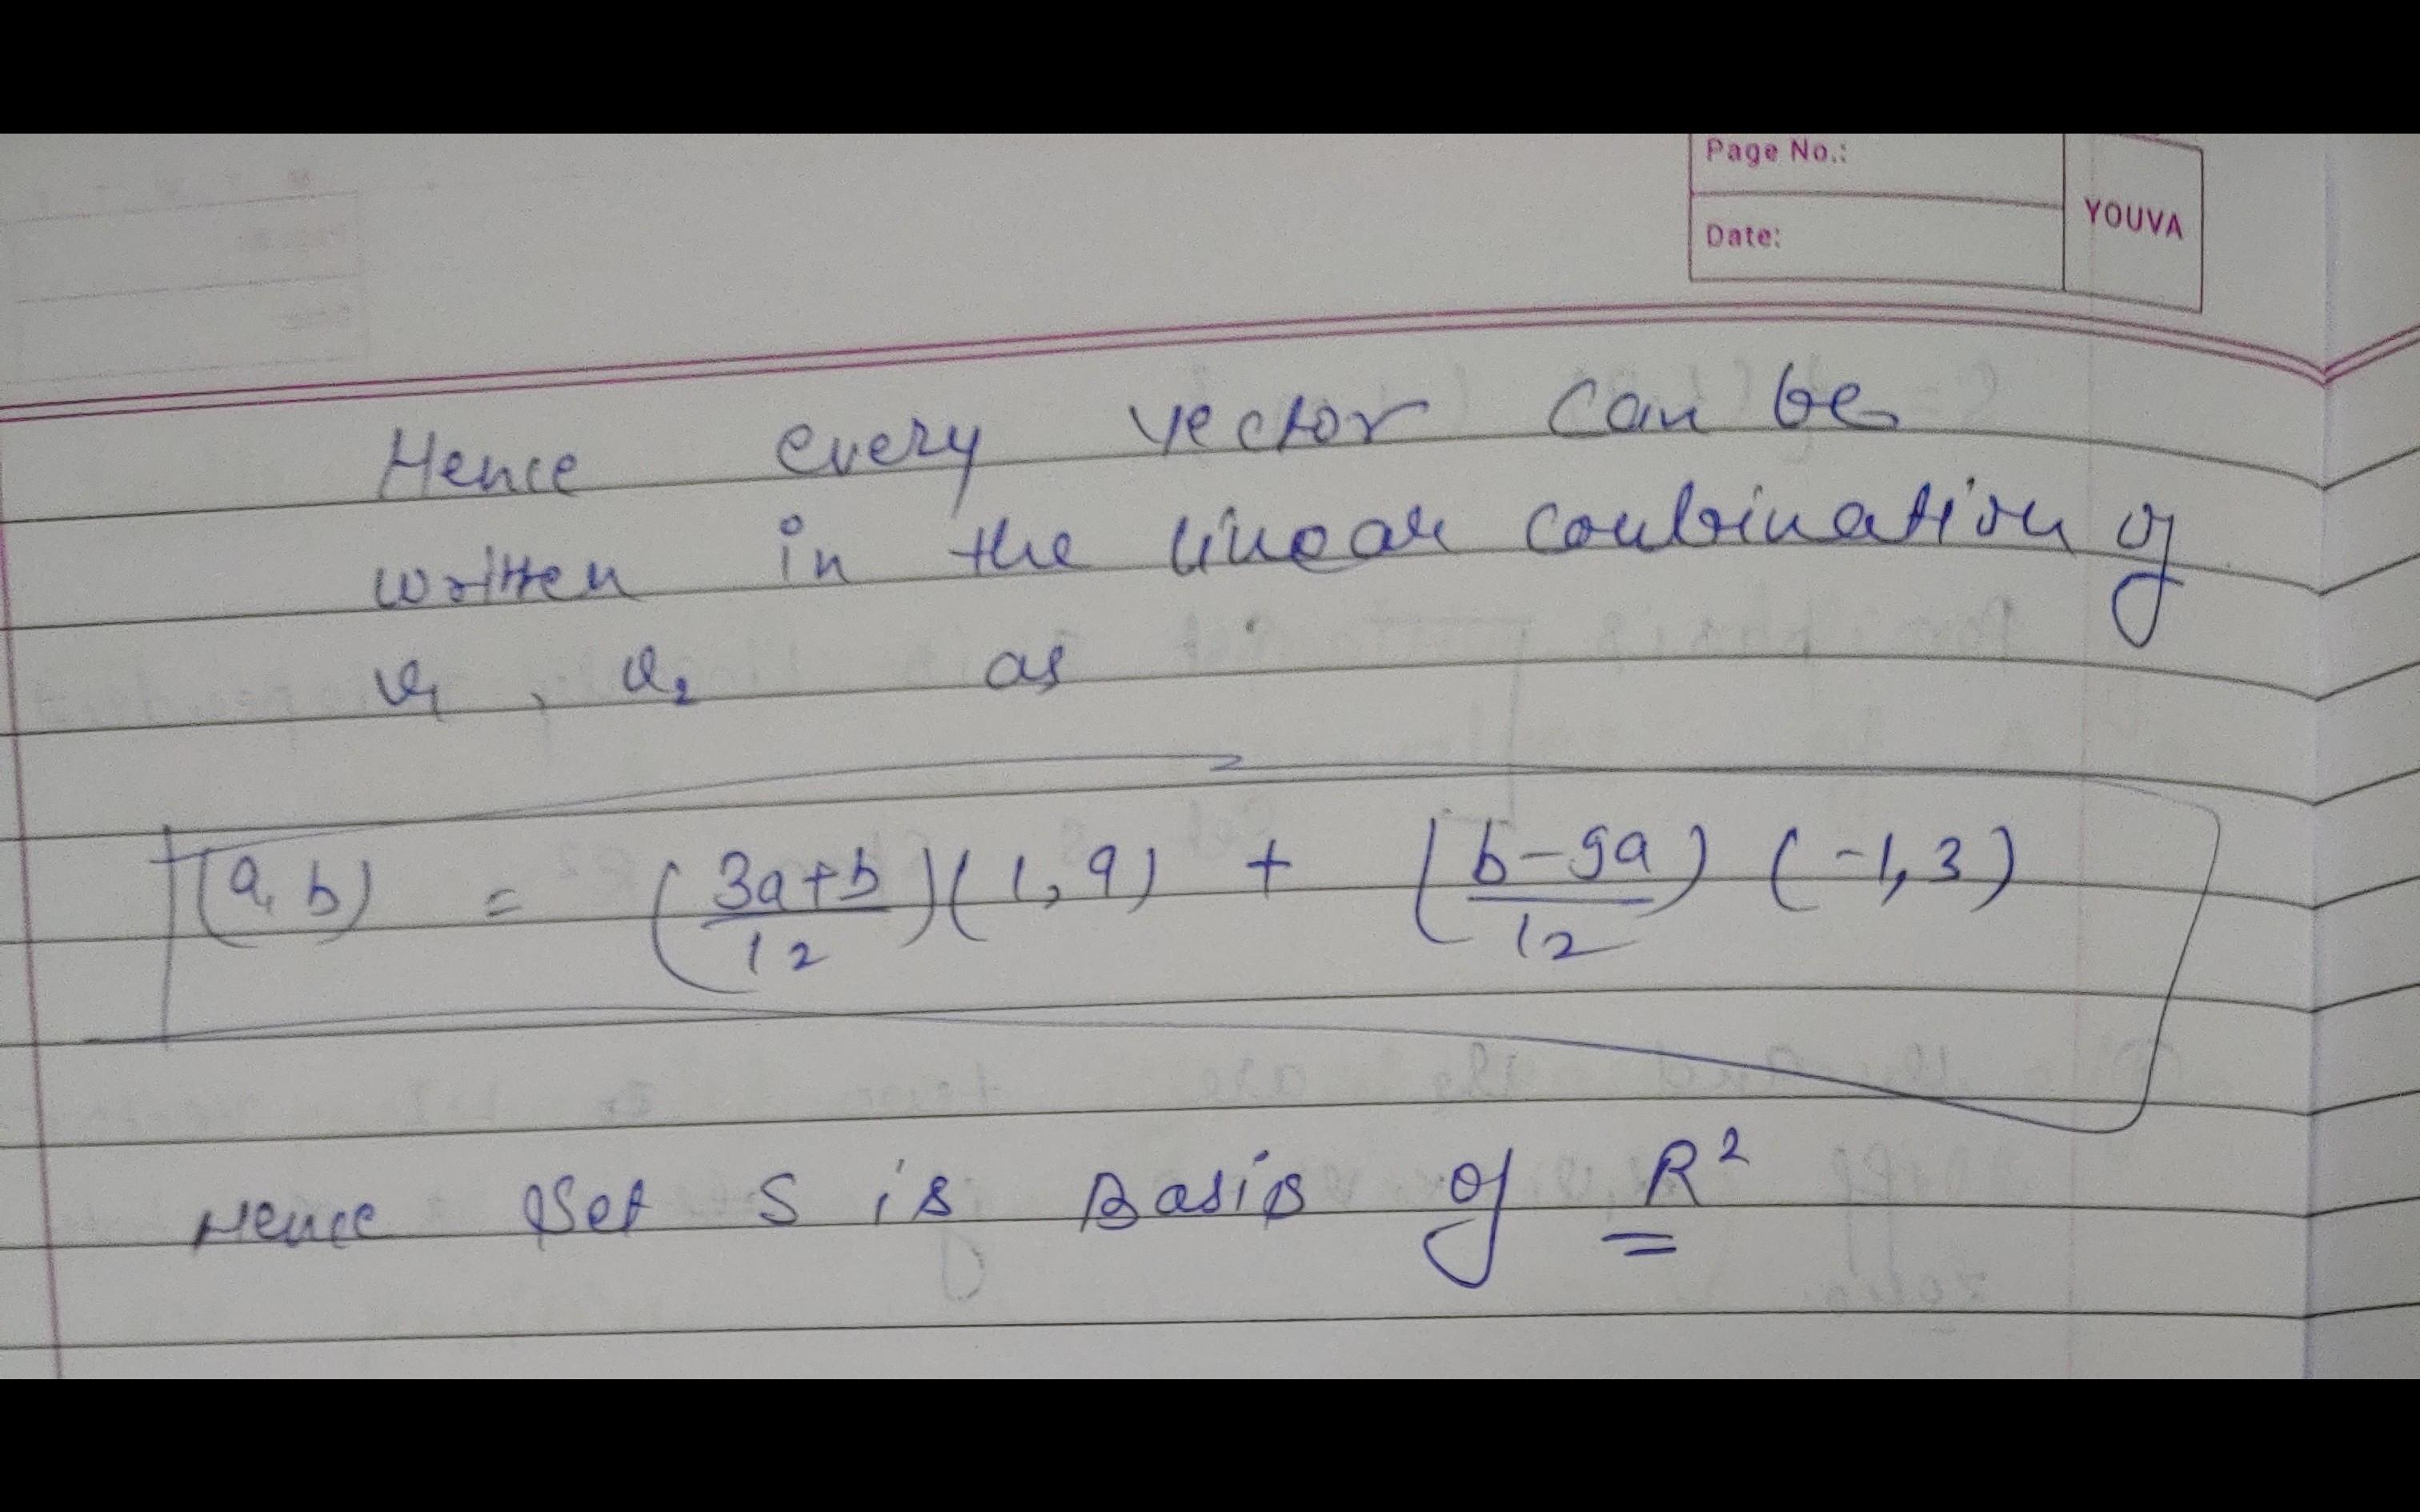 Page No.:
Date:
YOUVA
Hence every vector can be
written in the linear combination of
v₁, v₂ as
(a, b) = (3a+b/12)(1, 9) + (b-9a/12)(-1, 3)
Hence Set S is Basis of R²